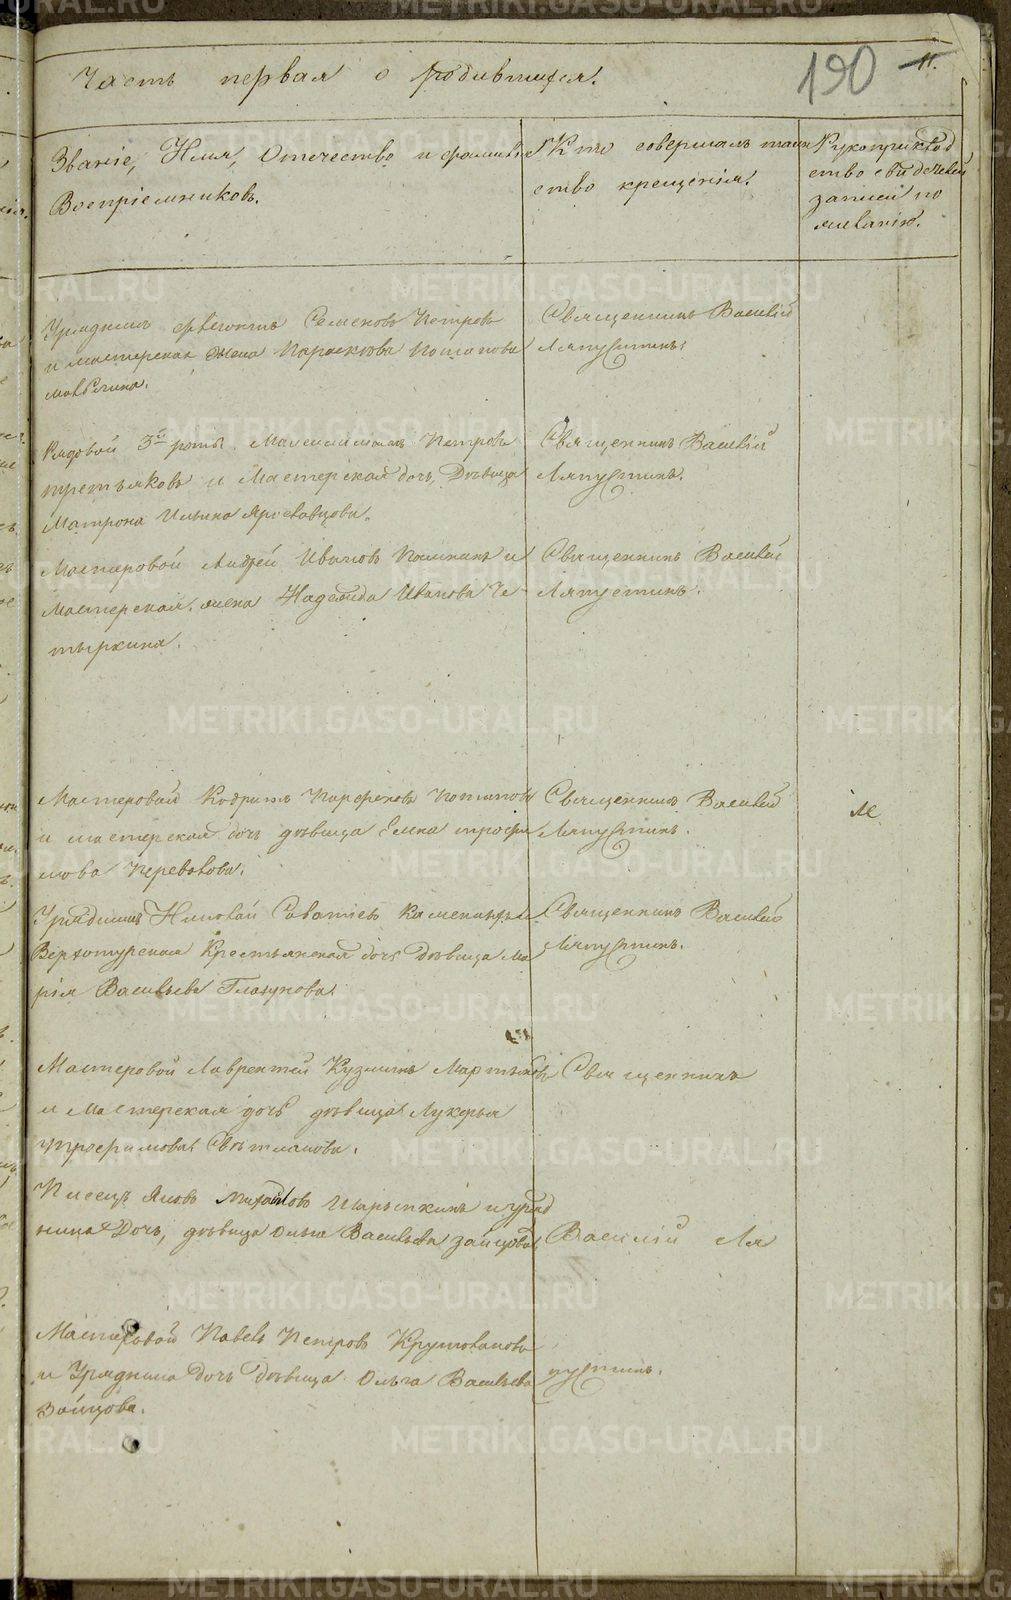 Часть первая о родившихся.
190
11.
Званіе, Имя, Отечество и фамилія
Воспріемниковъ.
Кто совершалъ таин
ство крещенія.
Рукоприклад
ство свидѣтелей
записи по
желанію.
Урядникъ Семеновъ Петровъ
и мастерская жена Параскева Потапова
Священникъ Василій
Ляпустинъ.
Рядовой 3й роты Максимиліанъ Петровъ
Третьяковъ и Мастерская дочь, Дѣвица
Матрона Ильина Ярославцова.
Священникъ Василій
Ляпустинъ.
Мастеровой Андрей Ивановъ и
Мастерская жена Надежда Иванова Че
тыркина.
Священникъ Василій
Ляпустинъ.
Мастеровой Кодратъ Парфеновъ Потаповъ
и мастерская дочь дѣвица Елена Трофи
мова Перевалова.
Священникъ Василій
Ляпустинъ.
Урядникъ Николай Саватіевъ
Верхотурская Крестьянская дочь дѣвица Ма
рія Васильева Глазунова.
Священникъ Василій
Ляпустинъ.
Мастеровой Лаврентій Кузминъ Мартыновъ
и Мастерская дочь дѣвица Лукерья
Трофимова Свѣтлакова.
Священникъ
Писецъ Яковъ Михайловъ Шарыпкинъ и уряд
ника Дочь, дѣвица Ольга Васильева Зайцова
Василій Ля
Мастеровой Павелъ Петровъ
и Урядника дочь дѣвица Ольга Васильева
Зайцова.
пустинъ.
METRIKI.GASO-URAL.RU